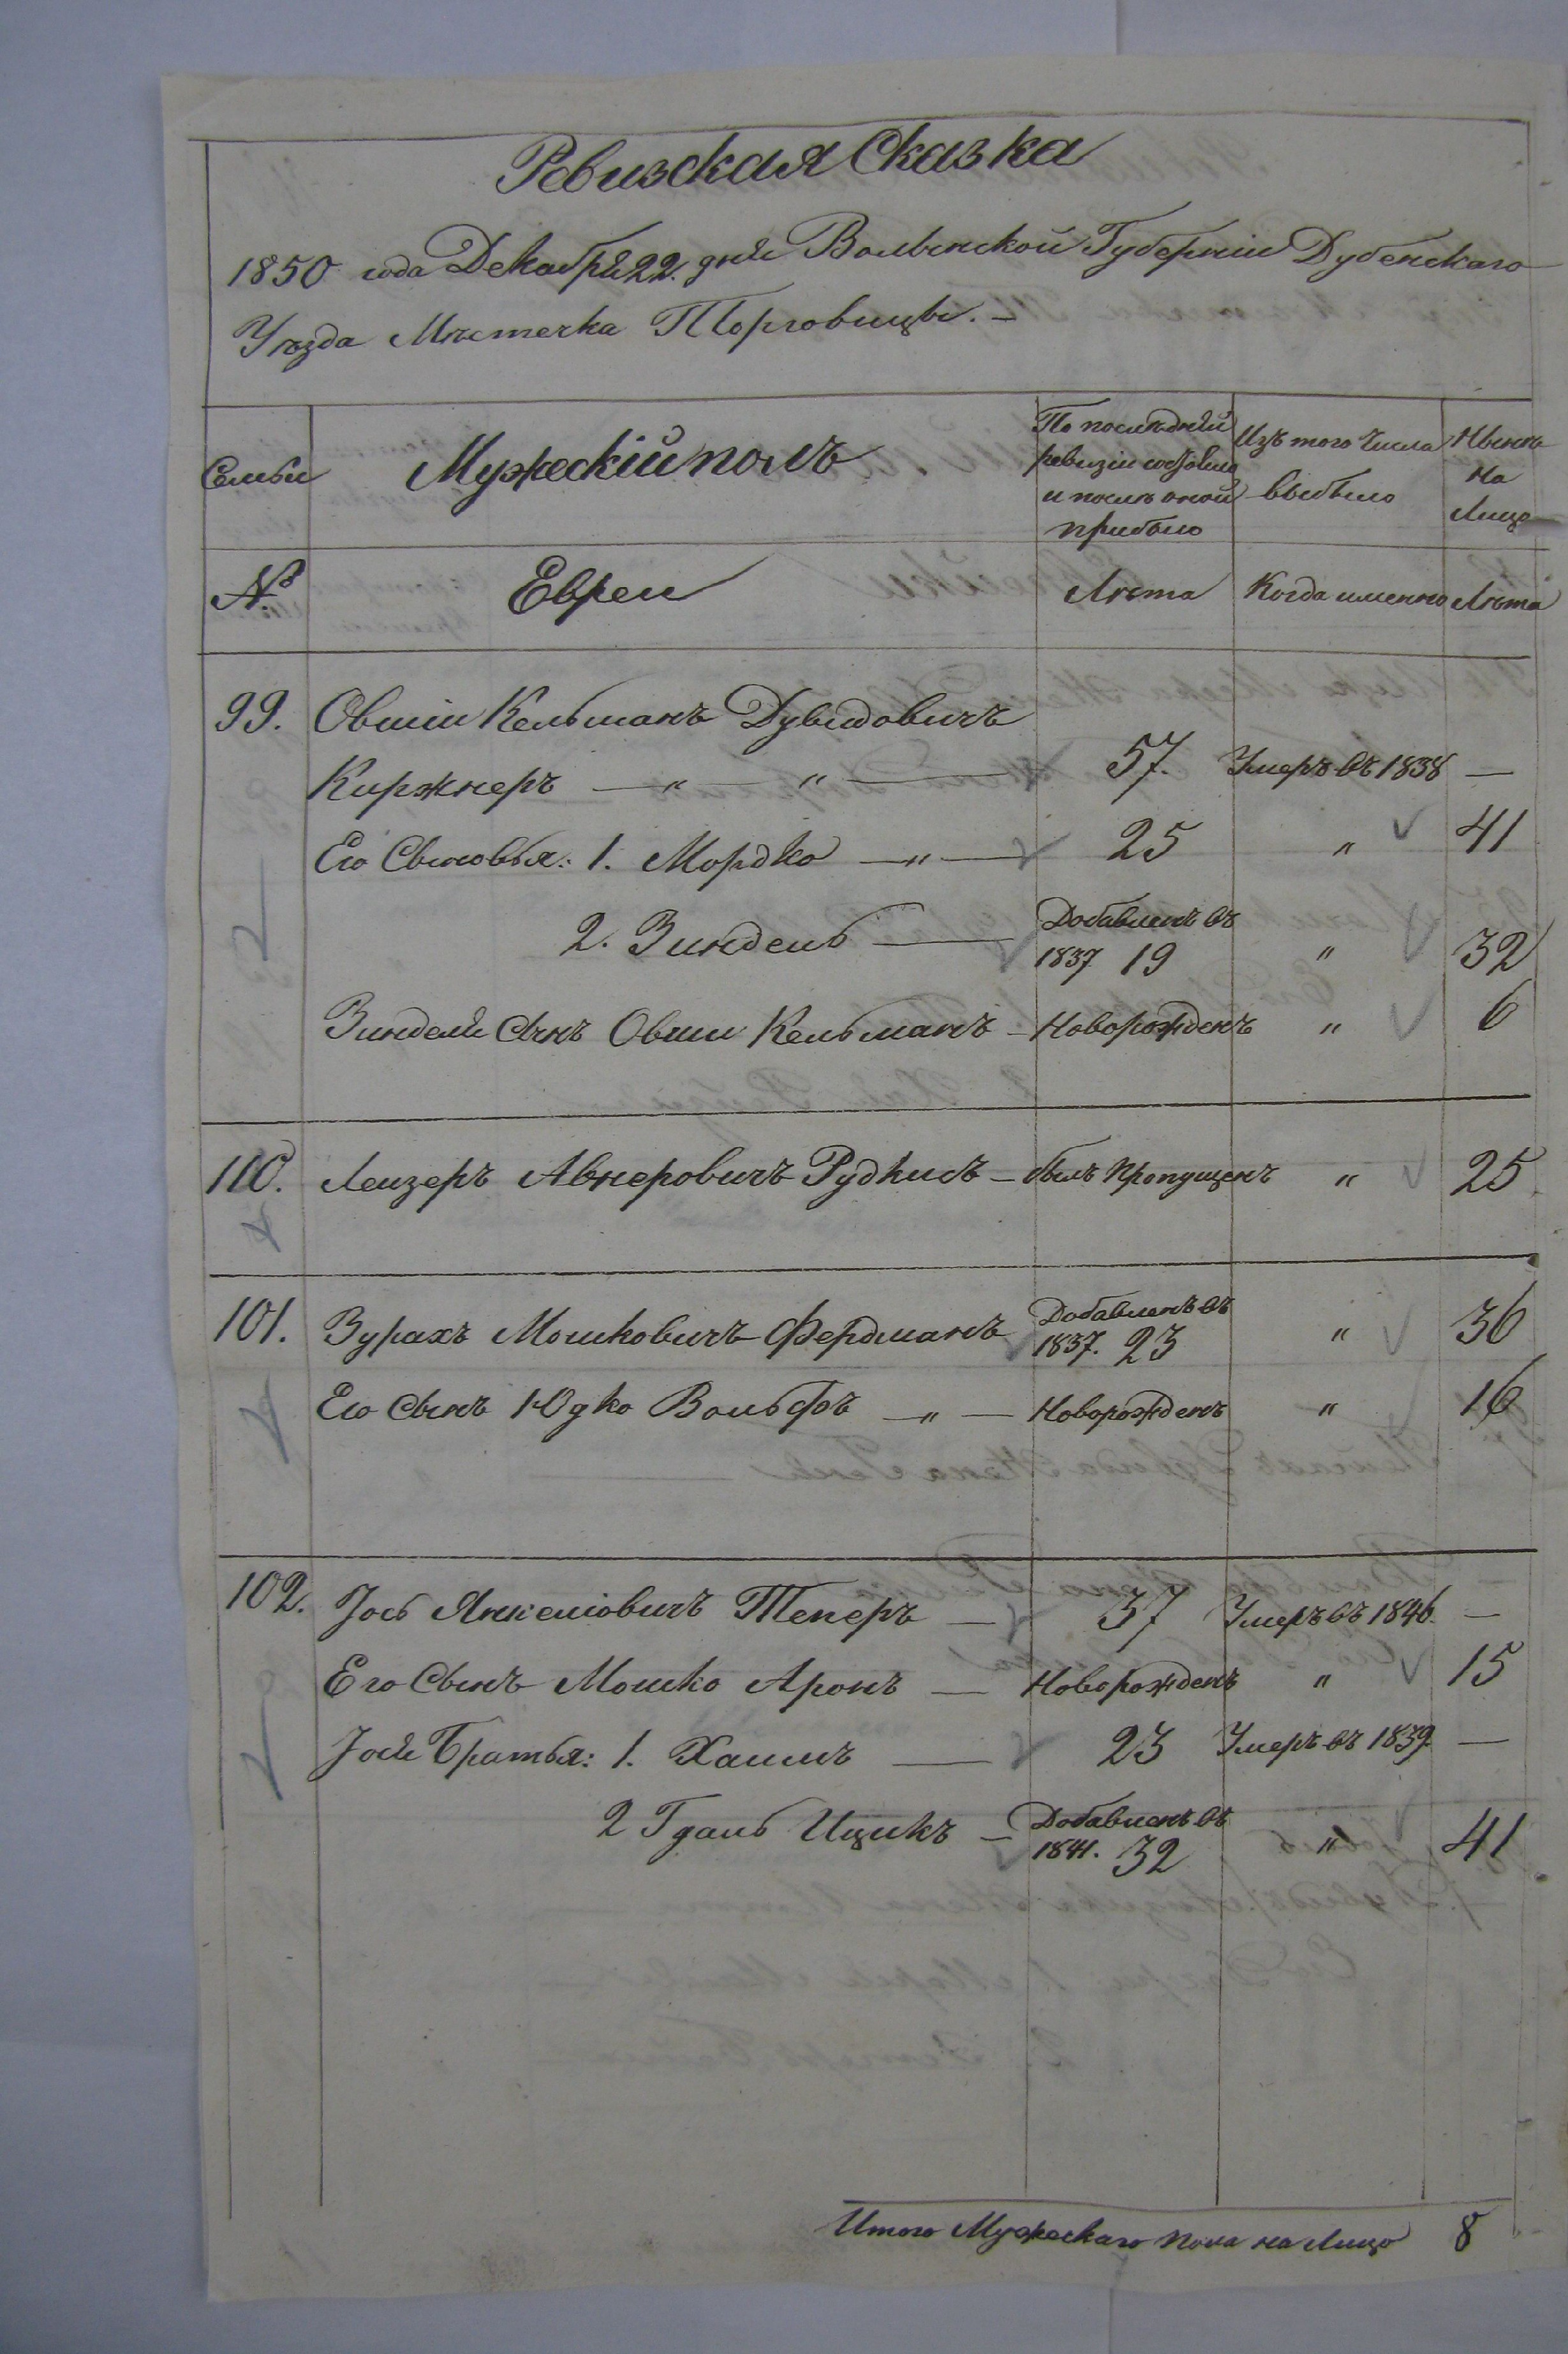 Ревизская Сказка
1850 года Декабря 22. дня Волынской Губерніи Дубенскаго
Уѣзда Мѣстечка Торговицы. –
Семьи
Мужескій полъ
По послѣдній ревизіи состояло и послѣ оной прибыло
Изъ того числа выбыло
Нынѣ на Лицо
№
Евреи
Лѣта
Когда именно
Лѣта
99. Овшіи Кельманъ Дувидовичъ
Киржнеръ — „ — „ — 57. Умеръ въ 1838 —
Его Сыновья: 1. Мордко — „ — 25 „ 41
2. Зиндель — Добавленъ въ 1837 19 „ 32
Зинделя Сынъ Овши Кельманъ – Новорожденъ „ 6
100. Лейзеръ Авнеровичъ Рудкисъ – былъ пропущенъ „ 25
101. Зурахъ Мошковичъ Фердманъ Добавленъ въ 1837. 23 „ 36
Его Сынъ Юдко Вольфъ — „ — Новорожденъ „ 16
102. Іось Янкеліовичъ Теперъ — 37 Умеръ въ 1846. —
Его Сынъ Мошко Аронъ — Новорожденъ „ 15
Іося Братья: 1. Хаимъ — 23 Умеръ въ 1839. —
2 Гдаль Ицикъ – Добавленъ въ 1841. 32 „ 41
Итого Мужескаго пола на Лицо 8